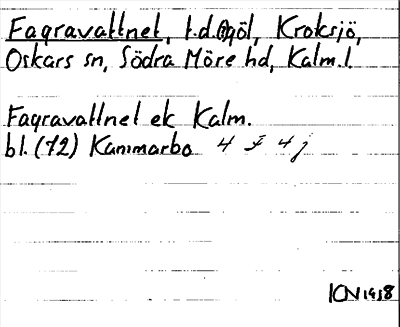 Fagravattnet, t.d. göl, Kroksjö,
Oskars sn, Södra Möre hd, Kalm. l.
Fagravattnet ek Kalm.
bl. (72) Kammarbo 4 I 4 j
ICN 1958